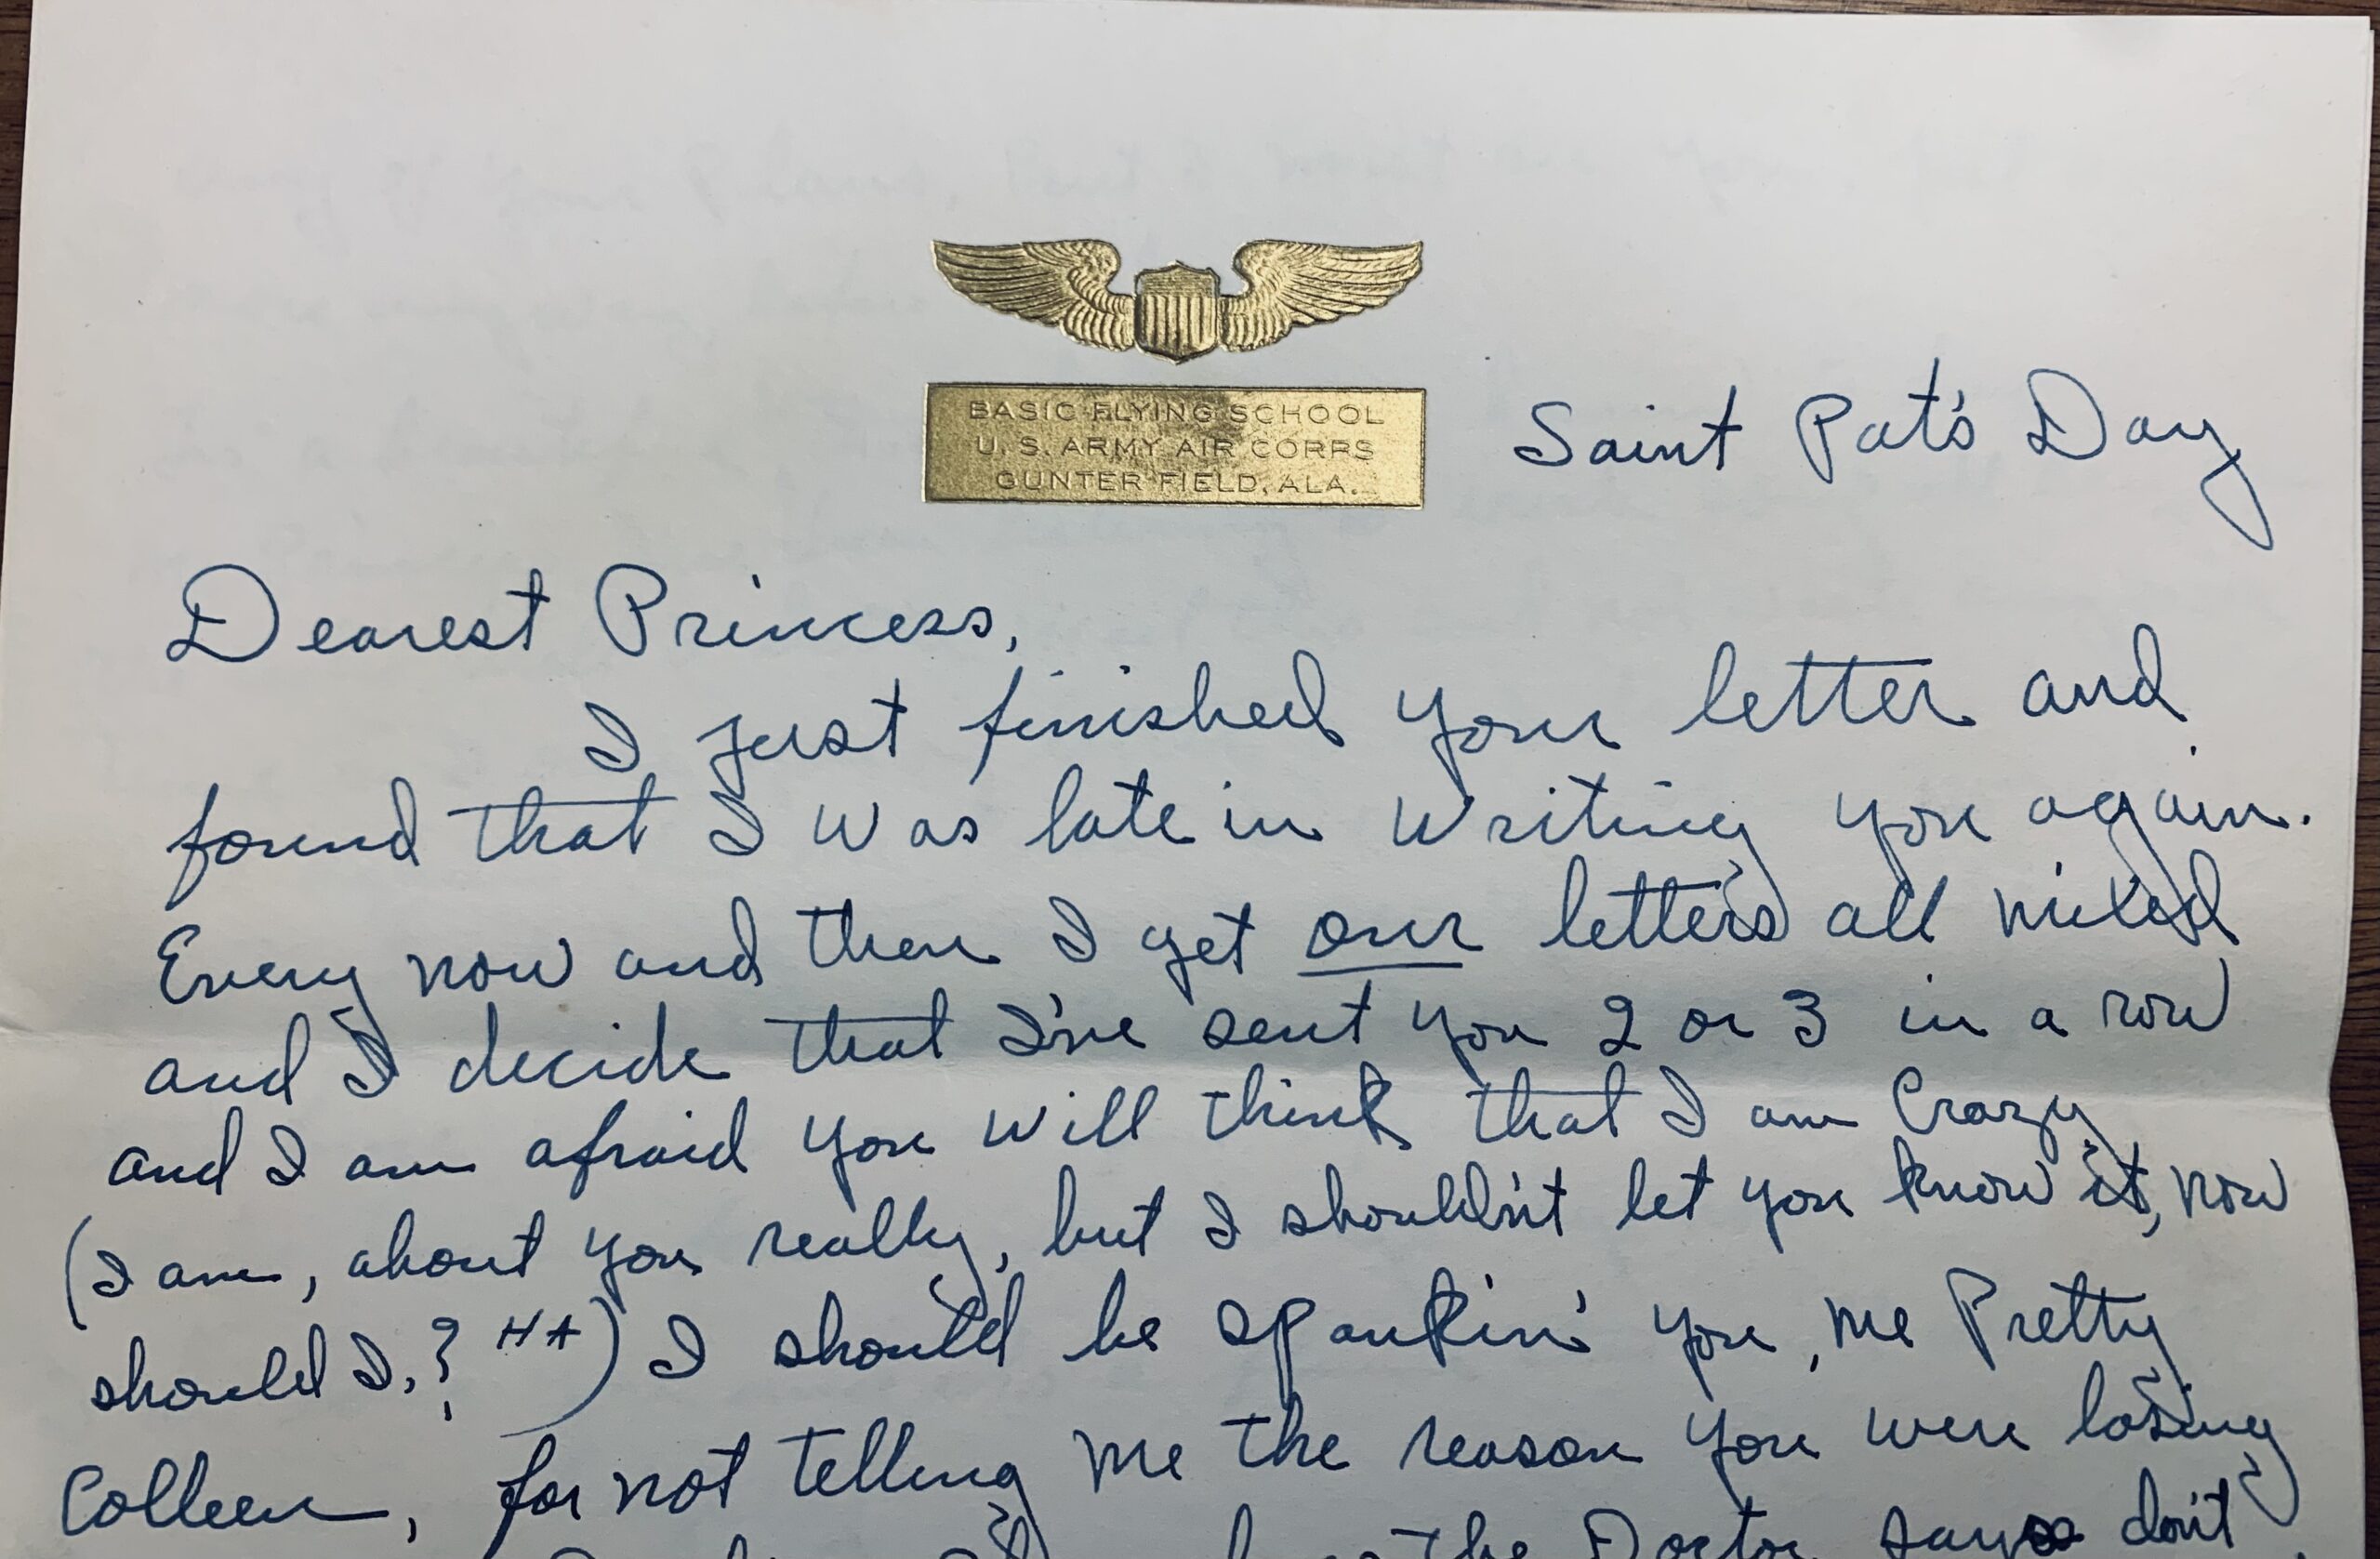 BASIC FLYING SCHOOL
U. S. ARMY AIR CORPS
GUNTER FIELD, ALA.
Saint Pat's Day
Dearest Princess,
I just finished your letter and
found that I was late in writing you again.
Every now and then I get our letters all mixed
and I decide that I've sent you 2 or 3 in a row
and I am afraid you will think that I am Crazy
(I am, about you really, but I shouldn't let you know it, now
should I,? HA) I should be spankin' you, me Pretty
Colleen, for not telling me the reason you were losing
the Doctor says don't